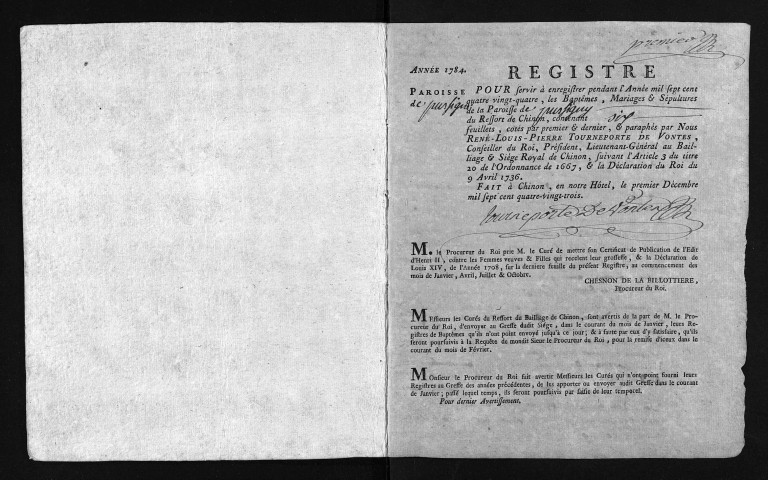 premier
ANNÉE 1784.
REGISTRE
PAROISSE
de pussigny
POUR servir à enregistrer pendant l'Année mil sept cent
quatre vingt-quatre, les Baptêmes, Mariages & Sépultures
de la Paroisse de pussigny
du Ressort de Chinon, contenant six
feuillets, cotés par premier & dernier, & paraphés par Nous
RENÉ-LOUIS-PIERRE TOURNEPORTE DE VONTES,
Conseiller du Roi, Président, Lieutenant-Général au Bail-
liage & Siége Royal de Chinon, suivant l'Article 3 du titre
20 de l'Ordonnance de 1667, & la Déclaration du Roi du
9 Avril 1736.
FAIT à Chinon, en notre Hôtel, le premier Décembre
mil sept cent quatre-vingt-trois.
Tourneporte De Vontes
M. le Procureur du Roi prie M. le Curé de mettre son Certificat de Publication de l'Edit
d'Henri II, contre les Femmes veuves & Filles qui recelent leur grossesse, & la Déclaration de
Louis XIV, de l'Année 1708, sur la derniere feuille du présent Registre, au commencement des
mois de Janvier, Avril, Juillet & Octobre.
CHESNON DE LA BILLOTTIERE,
Procureur du Roi.
MEssieurs les Curés du Ressort du Bailliage de Chinon, sont avertis de la part de M. le Pro-
cureur du Roi, d'envoyer au Greffe dudit Siége, dans le courant du mois de Janvier, leurs Re-
gistres de Baptêmes qu'ils n'ont point envoyé jusqu'à ce jour; & à faute par eux d'y satisfaire, qu'ils
seront poursuivis à la Requête de mondit Sieur le Procureur du Roi, pour la remise d'iceux dans le
courant du mois de Février.
MOnsieur le Procureur du Roi fait avertir Messieurs les Curés qui n'ont point fourni leurs
Registres au Greffe des années précédentes, de les apporter ou envoyer audit Greffe dans le courant
de Janvier; passé lequel temps, ils seront poursuivis par saisie de leur temporel.
Pour dernier Avertissement.